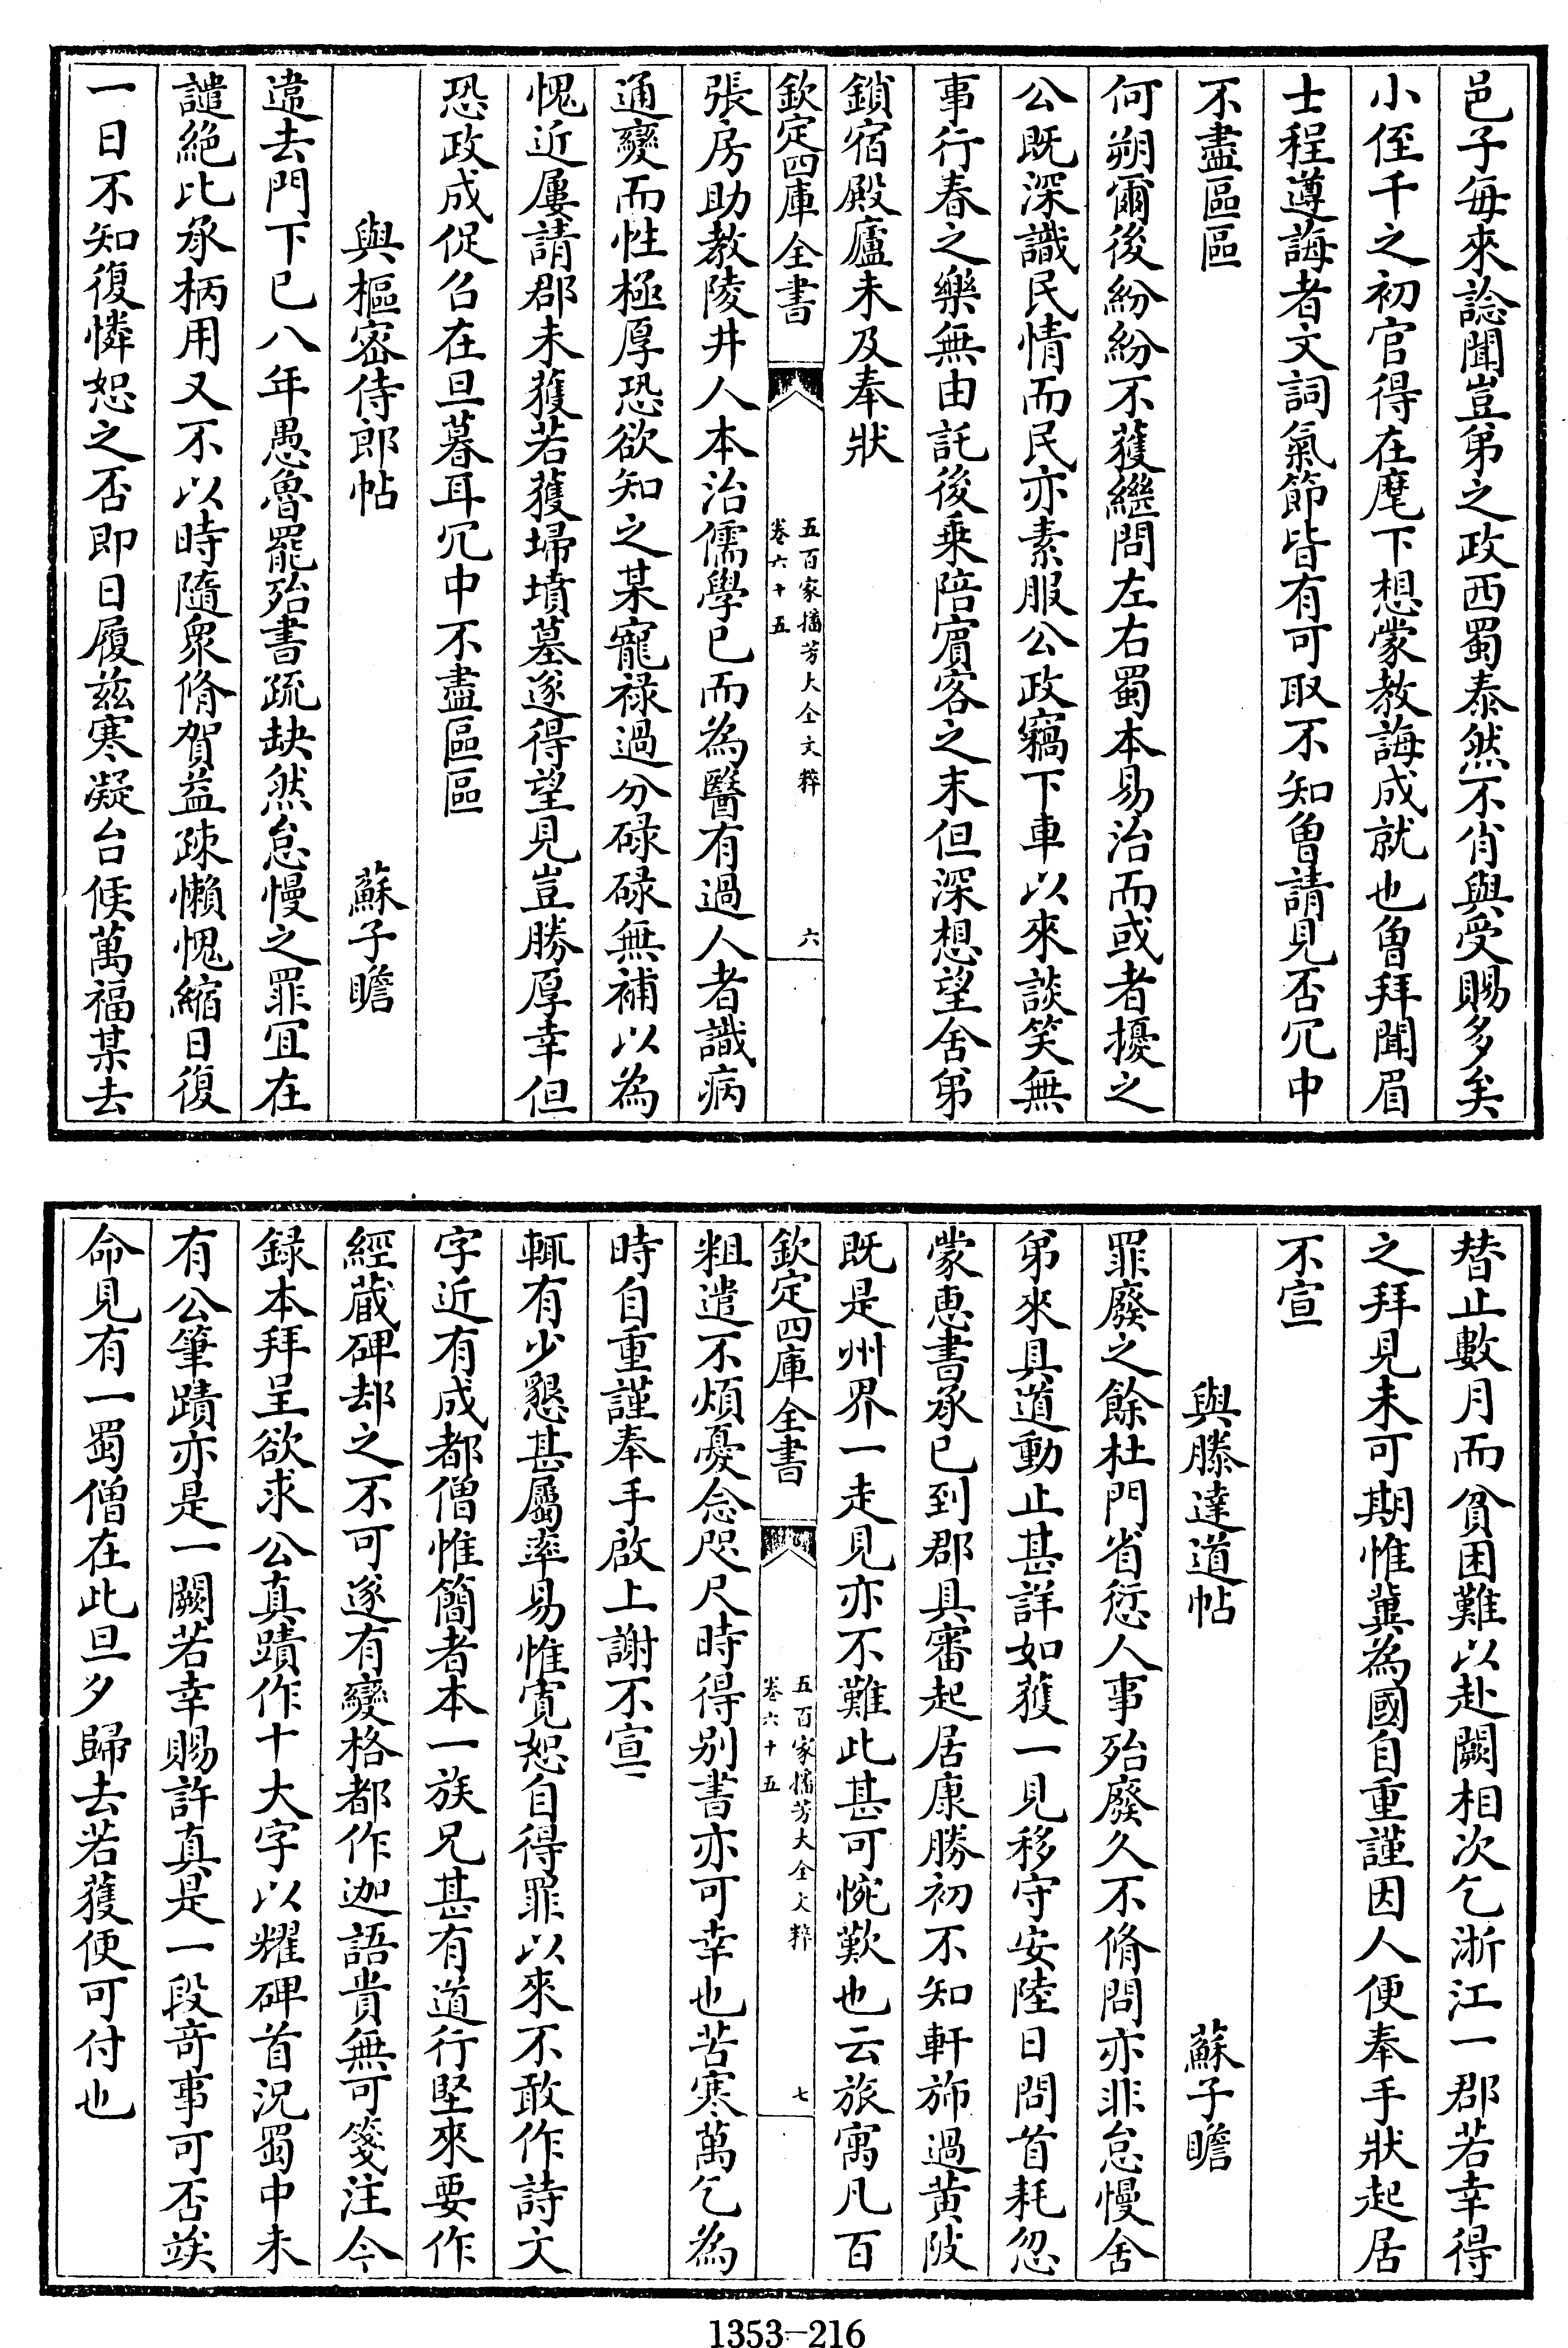 邑子每來諗聞豈弟之政西蜀泰然不肖與受賜多矣
小侄千之初官得在麾下想蒙教誨成就也魯拜聞眉
士程遵誨者文詞氣節皆有可取不知魯請見否冗中
不盡區區
何朔爾後紛紛不獲繼問左右蜀本易治而或者擾之
公既深識民情而民亦素服公政竊下車以來談笑無
事行春之樂無由託後乗陪賓客之末但深想望舍弟
鎖宿殿廬未及奉狀
欽定四庫全書
五百家播芳大全文粹
卷六十五
六
張房助教陵井人本治儒學已而為醫有過人者識病
通變而性極厚恐欲知之某寵祿過分碌碌無補以為
愧近屢請郡未獲若獲埽墳墓遂得望見豈勝厚幸但
恐政成促召在旦暮耳冗中不盡區區
與樞密侍郎帖 蘇子瞻
違去門下已八年愚魯罷殆書疏缺然怠慢之罪宜在
譴絶比承柄用又不以時隨衆脩賀益疎懶愧縮日復
一日不知復憐恕之否即日履兹寒凝台候萬福某去
替止數月而貧困難以赴闕相次乞浙江一郡若幸得
之拜見未可期惟冀為國自重謹因人便奉手狀起居
不宣
與滕達道帖 蘇子瞻
罪廢之餘杜門省愆人事殆廢久不脩問亦非怠慢舍
弟來具道動止甚詳如獲一見移守安陸日問首耗忽
蒙恵書承已到郡具審起居康勝初不知軒斾過黄陂
既是州界一走見亦不難此甚可惋歎也云旅寓凡百
欽定四庫全書
五百家播芳大全文粹
卷六十五
七
粗遣不煩憂念咫尺時得别書亦可幸也苦寒萬乞為
時自重謹奉手啟上謝不宣
輒有少懇甚屬率易惟寛恕自得罪以來不敢作詩文
字近有成都僧惟簡者本一族兄甚有道行堅來要作
經蔵碑却之不可遂有變格都作迦語貴無可箋注今
録本拜呈欲求公真蹟作十大字以耀碑首況蜀中未
有公筆蹟亦是一闕若幸賜許真是一段竒事可否竢
命見有一蜀僧在此旦夕歸去若獲便可付也
1353-216